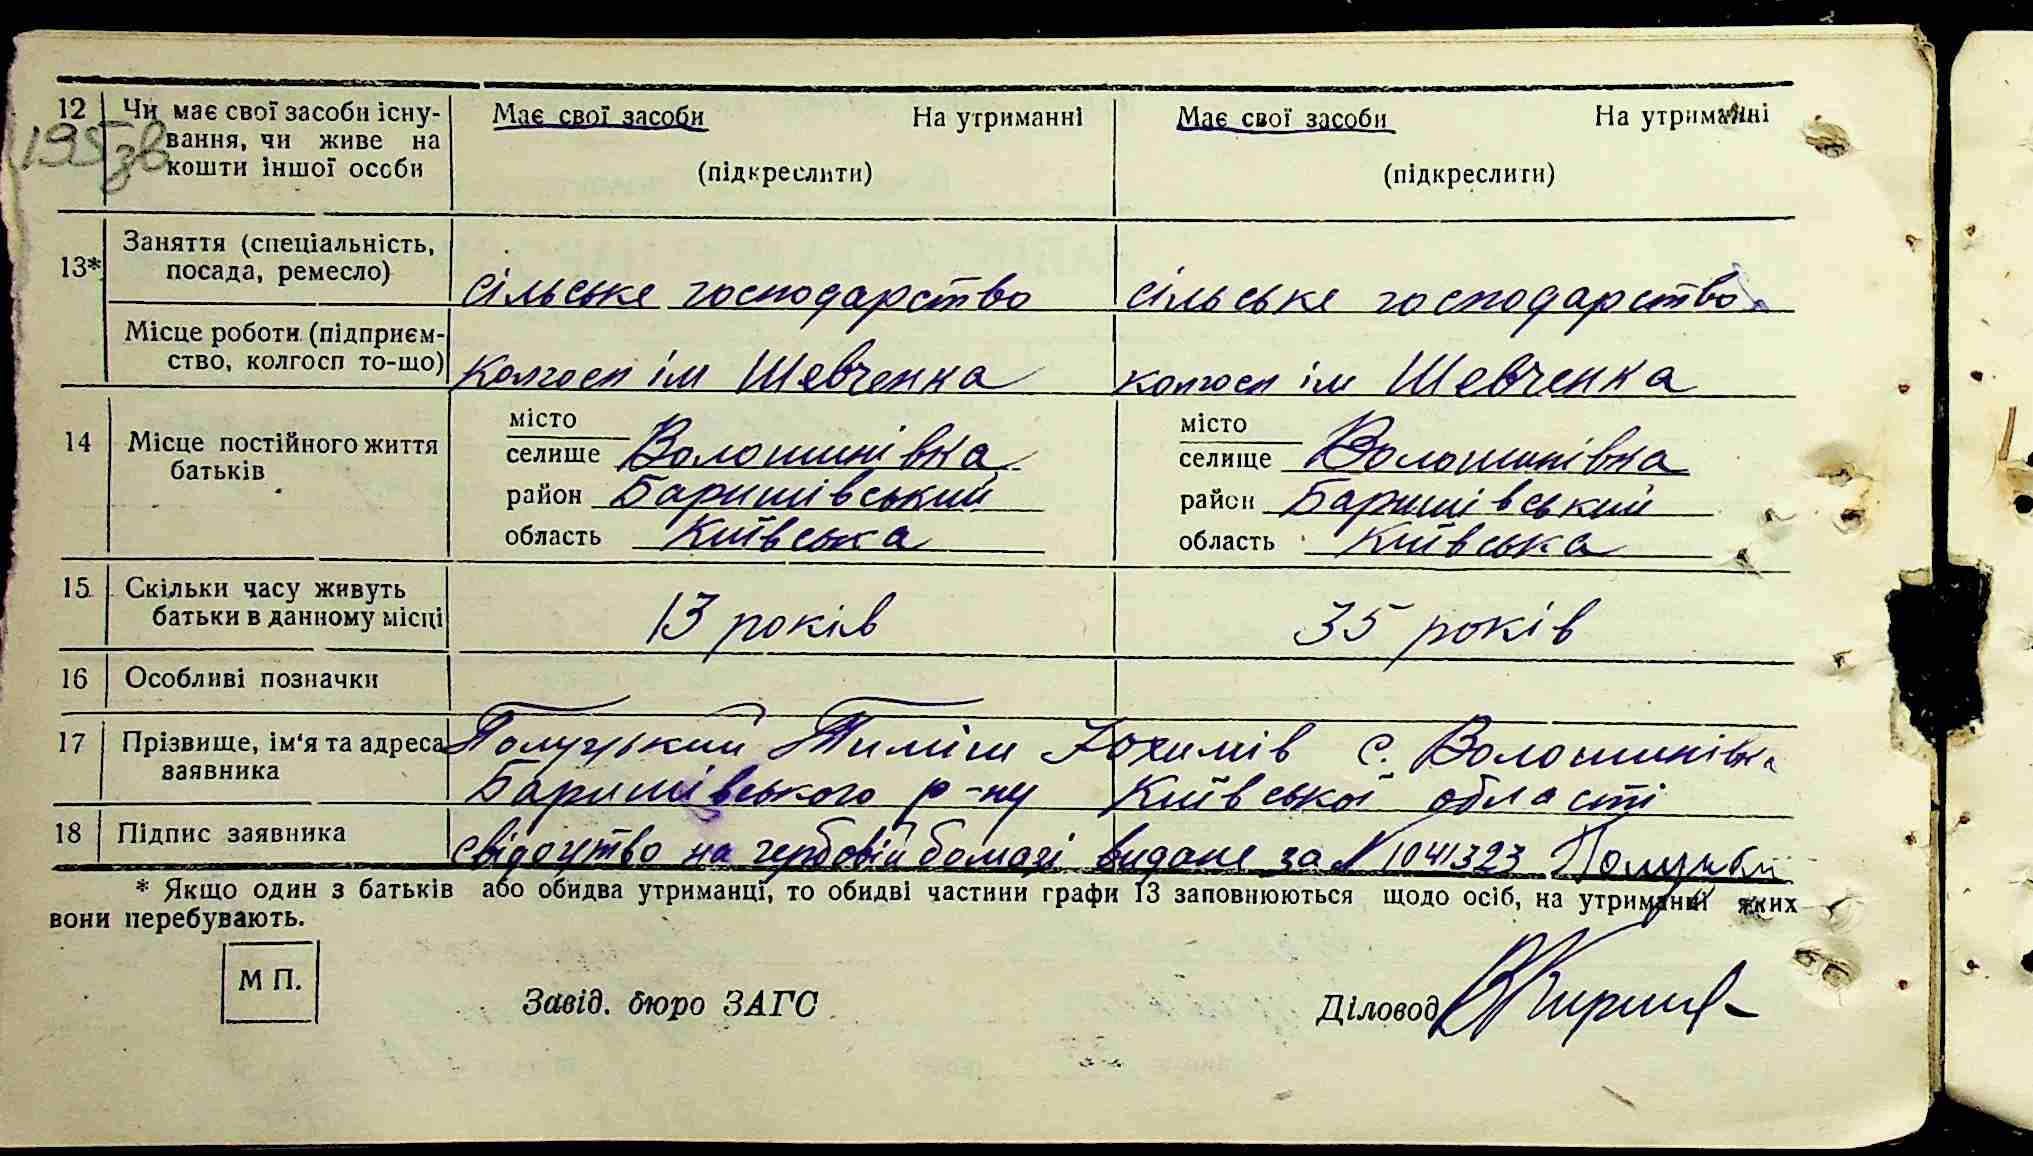 12 Чи має свої засоби існу- Має свої засоби На утриманні Має свої засоби На утриманні
195зв вання, чи живе на
кошти іншої особи (підкреслити) (підкреслити)
13* Заняття (спеціальність,
посада, ремесло) сільське господарство сільське господарство
Місце роботи (підприєм-
ство, колгосп то-що) колгосп ім Шевченка колгосп ім Шевченка
14 Місце постійного життя батьків
місто місто
селище Волошинівка селище Волошинівка
район Баришівський район Баришівський
область Київська область Київська
15 Скільки часу живуть
батьки в данному місці 13 років 35 років
16 Особливі позначки
17 Прізвище, ім'я та адреса Полуцький Тиміш Юхимів с. Волошинівка
заявника Баришівського р-ну Київської області
18 Підпис заявника свідоцтво на гербовій бомазі видане за N 1041323
* Якщо один з батьків або обидва утриманці, то обидві частини графи 13 заповнюються щодо осіб, на утриманні яких
вони перебувають.
М П.
Завід. бюро ЗАГС Діловод